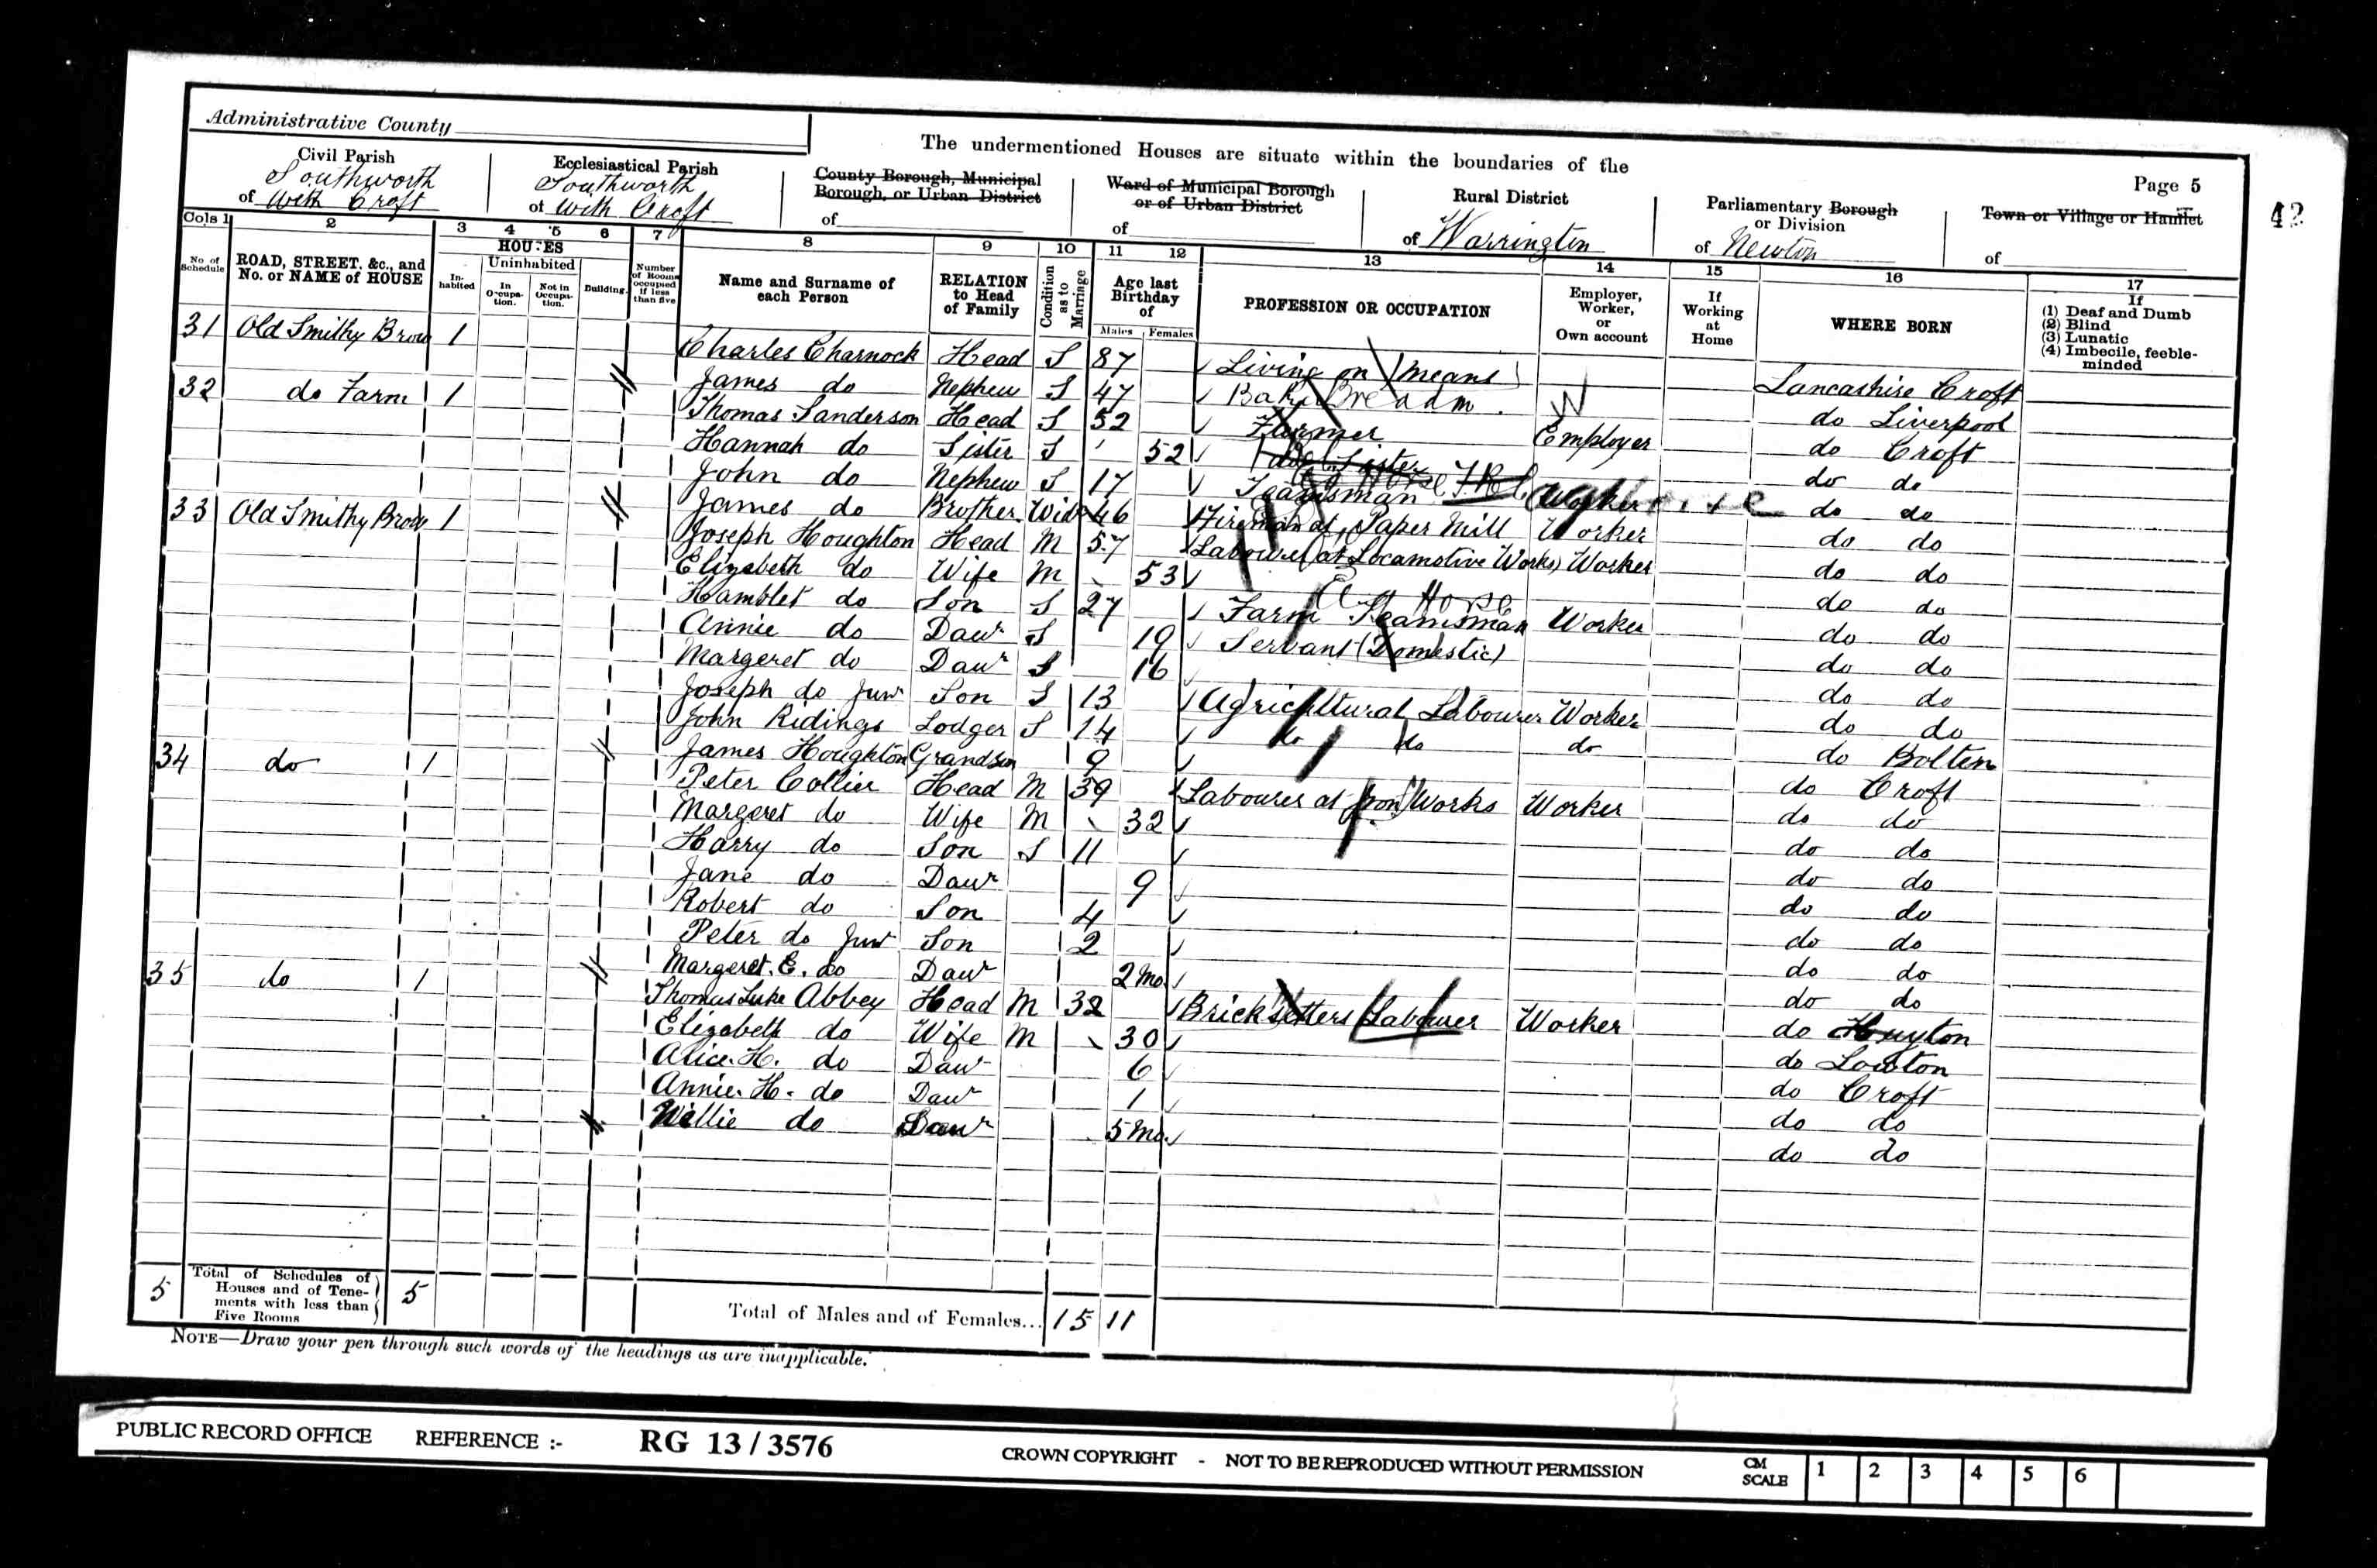 Administrative County
The undermentioned Houses are situate within the boundaries of the
Page 5
42
Civil Parish
of Southworth with Croft
Ecclesiastical Parish
of Southworth with Croft
County Borough, Municipal Borough, or Urban District
of
Ward of Municipal Borough or of Urban District
of
Rural District
of Warrington
Parliamentary Borough or Division
of Newton
Town or Village or Hamlet
of
Cols 1 2 3 4 5 6 7 8 9 10 11 12 13 14 15 16 17
No. of Schedule
ROAD, STREET, &c., and No. or NAME of HOUSE
HOUSES
Inhabited
Uninhabited
In Occupation.
Not in Occupation.
Building.
Number of Rooms occupied if less than five
Name and Surname of each Person
RELATION to Head of Family
Condition as to Marriage
Age last Birthday of
Males Females
PROFESSION OR OCCUPATION
Employer, Worker, or Own account
If Working at Home
WHERE BORN
If
(1) Deaf and Dumb
(2) Blind
(3) Lunatic
(4) Imbecile, feeble-minded
31 Old Smithy Brow 1 Charles Charnock Head S 87 Living on means Lancashire Croft
James do Nephew S 47 W do Liverpool
32 do Farm 1 Thomas Sanderson Head S 52 Farmer Employer do Croft
Hannah do Sister S 52 Sister do do
John do Nephew S 17 Teamsman Worker do do
James do Brother Widr 46 Fireman at Paper Mill Worker do do
33 Old Smithy Brow 1 Joseph Houghton Head M 57 Labourer (at Locomotive Works) Worker do do
Elizabeth do Wife M 53 do do
Hamblet do Son S 27 Farm Teamsman Horse Worker do do
Annie do Daur S 19 Servant (Domestic) do do
Margeret do Daur S 16 do do
Joseph do Junr Son S 13 Agricultural Labourer Worker do do
John Ridings Lodger S 14 do do do do Bolton
James Houghton Grandson 9 do Croft
34 do 1 Peter Collier Head M 39 Labourer at Iron Works Worker do do
Margeret do Wife M 32 do do
Harry do Son S 11 do do
Jane do Daur 9 do do
Robert do Son 4 do do
Peter do Junr Son 2 do do
Margeret. E. do Daur 2 Mo. do do
35 do 1 Thomas Luke Abbey Head M 32 Bricksetters Labourer Worker do Huyton
Elizabeth do Wife M 30 do Lowton
Alice. H. do Daur 6 do Croft
Annie. H. do Daur 1 do do
Willie do 5 Mo. do do
5 Total of Schedules of Houses and of Tenements with less than Five Rooms 5 Total of Males and of Females... 15 11
NOTE—Draw your pen through such words of the headings as are inapplicable.
PUBLIC RECORD OFFICE REFERENCE :- RG 13 / 3576 CROWN COPYRIGHT - NOT TO BE REPRODUCED WITHOUT PERMISSION CM SCALE 1 2 3 4 5 6